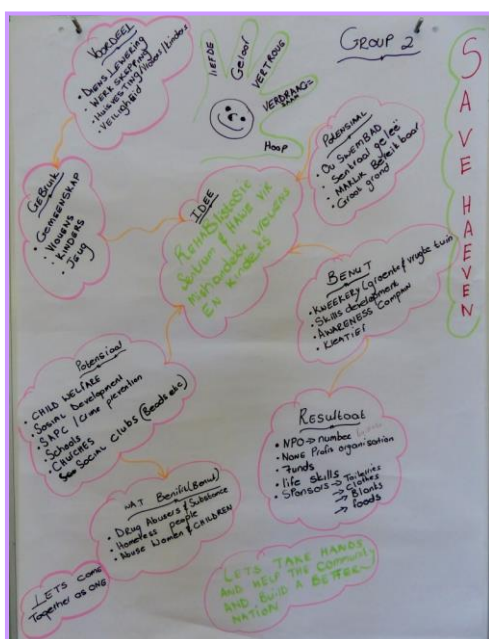 GROUP 2
SAVE HAEVEN
VOORDEEL
• DIENSLEWERING
• WERKSKEPPING
• HUISVESTING/Vrouens/kinders
• VEILIGHEID
LIEFDE
Geloof
VERTROUE
VERDRAAG
SAAM
HOOP
POTENSIAAL
• OU SWEMBAD
• Sentraal geleë
• MAKLIK Bereikbaar
• Groot grond
GEBRUIK
• GEMEENSKAP
• VROUENS
• KINDERS
• JEUG
IDEE
REHABILITASIE
Sentrum & HAWE VIR
Mishandelde VROUENS
EN KINDERS
BENUT
• KWEEKERY (groente/vrugte tuin
• Skills development
• AWARENESS Campain
• KREATIEF
Potensiaal
• CHILD WELFARE
• Social Development
• SAPC / Crime prevention
• Schools
• CHURCHES
• Social clubs (Beads etc)
Resultaat
• NPO → number
• NONE Profit organisation
• Funds
• life skills
• Sponsors → Toiletries
→ Clothes
→ Blankts
→ foods
WAT Benifit (Benut)
• DRUG Abusers & Substance
• Homeless people
• Abuse Women & CHILDREN
LETS COME
Together as ONE
LETS TAKE HANDS
AND HELP THE COMMUNITY
AND BUILD A BETTER
NATION